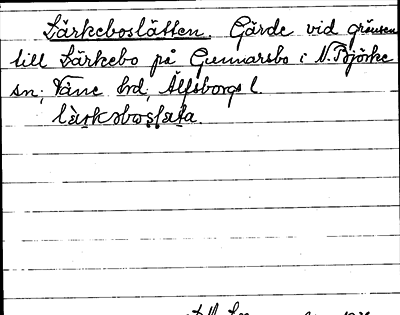 Lärkeboslätten. Gärde vid gränsen
till Lärkebo på Gunnarsbo i N. Björke
sn; Väne hd, Älfsborgs l.